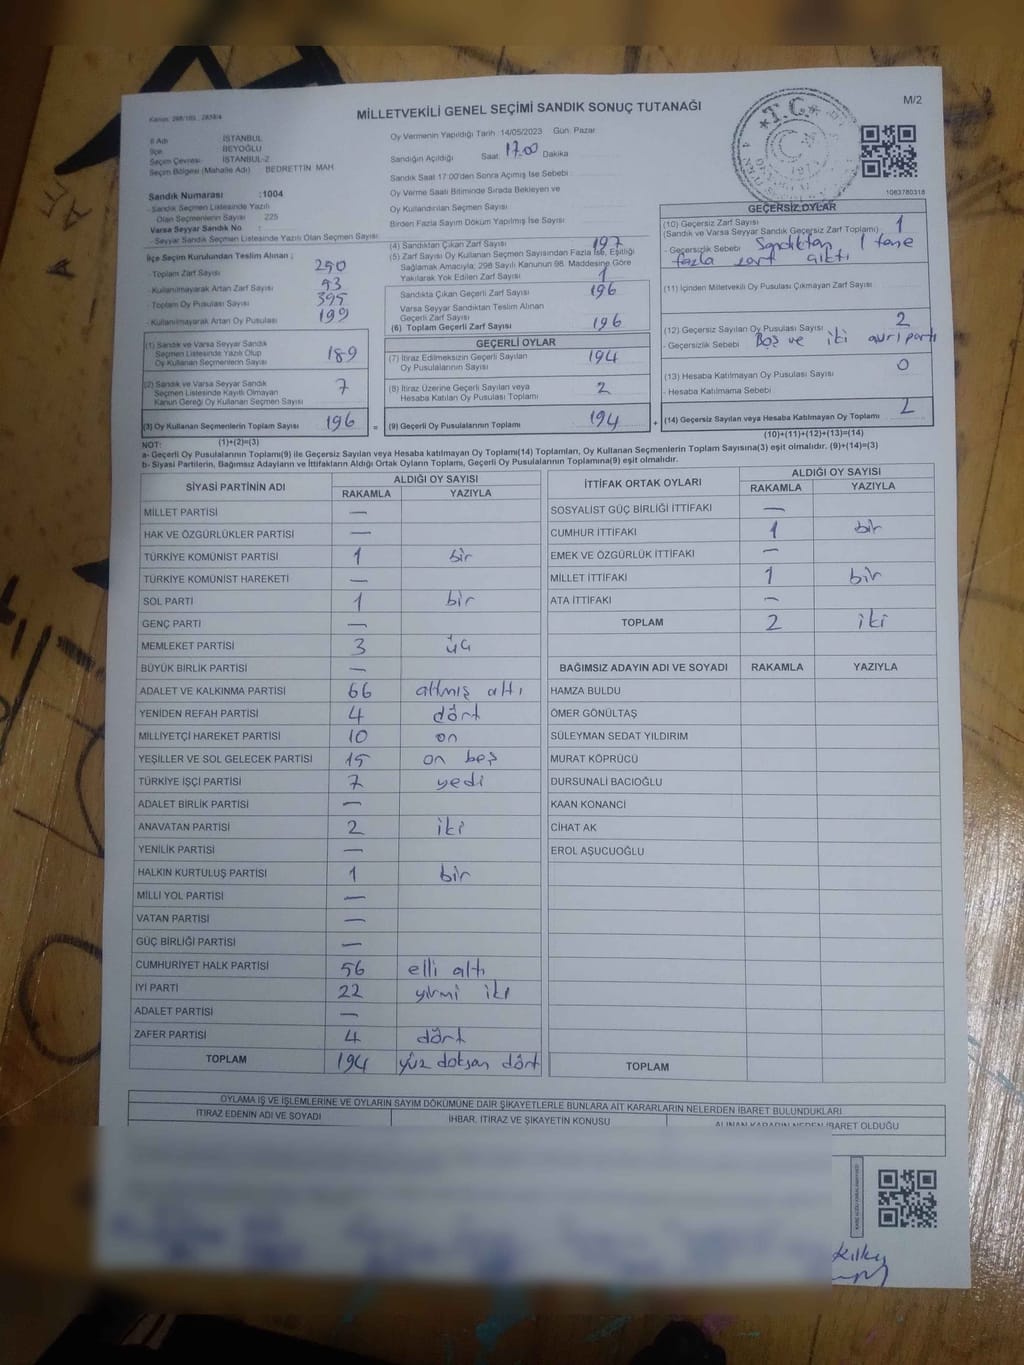 MİLLETVEKİLİ GENEL SEÇİMİ SANDIK SONUÇ TUTANAĞI
M/2
İl Adı : İSTANBUL
İlçe : BEYOĞLU
Seçim Çevresi : İSTANBUL-2
Seçim Bölgesi (Mahalle Adı) : BEDRETTİN MAH
Sandık Numarası : 1004
- Sandık Seçmen Listesinde Yazılı
Olan Seçmenlerin Sayısı : 225
Varsa Seyyar Sandık No :
- Seyyar Sandık Seçmen Listesinde Yazılı Olan Seçmen Sayısı
İlçe Seçim Kurulundan Teslim Alınan ;
- Toplam Zarf Sayısı 290
- Kullanılmayarak Artan Zarf Sayısı 93
- Toplam Oy Pusulası Sayısı 395
- Kullanılmayarak Artan Oy Pusulası 199
(1) Sandık ve Varsa Seyyar Sandık
Seçmen Listesinde Yazılı Olup
Oy Kullanan Seçmenlerin Sayısı 189
(2) Sandık ve Varsa Seyyar Sandık
Seçmen Listesinde Kayıtlı Olmayan
Kanun Gereği Oy Kullanan Seçmen Sayısı 7
(3) Oy Kullanan Seçmenlerin Toplam Sayısı 196 =
Oy Vermenin Yapıldığı Tarih : 14/05/2023 Gün: Pazar
Sandığın Açıldığı Saat: 17.00 Dakika
Sandık Saat 17:00'den Sonra Açılmış İse Sebebi
Oy Verme Saati Bitiminde Sırada Bekleyen ve
Oy Kullandırılan Seçmen Sayısı
Birden Fazla Sayım Döküm Yapılmış İse Sayısı
(4) Sandıktan Çıkan Zarf Sayısı 197
(5) Zarf Sayısı Oy Kullanan Seçmen Sayısından Fazla İse, Eşitliği
Sağlamak Amacıyla; 298 Sayılı Kanunun 98. Maddesine Göre
Yakılarak Yok Edilen Zarf Sayısı 1
Sandıkta Çıkan Geçerli Zarf Sayısı 196
Varsa Seyyar Sandıktan Teslim Alınan
Geçerli Zarf Sayısı
(6) Toplam Geçerli Zarf Sayısı 196
GEÇERLİ OYLAR
(7) İtiraz Edilmeksizin Geçerli Sayılan
Oy Pusulalarının Sayısı 194
(8) İtiraz Üzerine Geçerli Sayılan veya
Hesaba Katılan Oy Pusulası Toplamı 2
(9) Geçerli Oy Pusulalarının Toplamı 194 +
1063780318
GEÇERSİZ OYLAR
(10) Geçersiz Zarf Sayısı
(Sandık ve Varsa Seyyar Sandık Geçersiz Zarf Toplamı) 1
- Geçersizlik Sebebi Sandıktan 1 tane
fazla zarf çıktı
(11) İçinden Milletvekili Oy Pusulası Çıkmayan Zarf Sayısı
(12) Geçersiz Sayılan Oy Pusulası Sayısı 2
- Geçersizlik Sebebi Boş ve iki ayrı parti
(13) Hesaba Katılmayan Oy Pusulası Sayısı 0
- Hesaba Katılmama Sebebi
(14) Geçersiz Sayılan veya Hesaba Katılmayan Oy Toplamı 2
NOT: (1)+(2)=(3) (10)+(11)+(12)+(13)=(14)
a- Geçerli Oy Pusulalarının Toplamı(9) ile Geçersiz Sayılan veya Hesaba katılmayan Oy Toplamı(14) Toplamları, Oy Kullanan Seçmenlerin Toplam Sayısına(3) eşit olmalıdır. (9)+(14)=(3)
b- Siyasi Partilerin, Bağımsız Adayların ve İttifakların Aldığı Ortak Oyların Toplamı, Geçerli Oy Pusulalarının Toplamına(9) eşit olmalıdır.
SİYASİ PARTİNİN ADI ALDIĞI OY SAYISI
RAKAMLA YAZIYLA
MİLLET PARTİSİ —
HAK VE ÖZGÜRLÜKLER PARTİSİ —
TÜRKİYE KOMÜNİST PARTİSİ 1 bir
TÜRKİYE KOMÜNİST HAREKETİ —
SOL PARTİ 1 bir
GENÇ PARTİ —
MEMLEKET PARTİSİ 3 üç
BÜYÜK BİRLİK PARTİSİ —
ADALET VE KALKINMA PARTİSİ 66 altmış altı
YENİDEN REFAH PARTİSİ 4 dört
MİLLİYETÇİ HAREKET PARTİSİ 10 on
YEŞİLLER VE SOL GELECEK PARTİSİ 15 on beş
TÜRKİYE İŞÇİ PARTİSİ 7 yedi
ADALET BİRLİK PARTİSİ —
ANAVATAN PARTİSİ 2 iki
YENİLİK PARTİSİ —
HALKIN KURTULUŞ PARTİSİ 1 bir
MİLLİ YOL PARTİSİ —
VATAN PARTİSİ —
GÜÇ BİRLİĞİ PARTİSİ —
CUMHURİYET HALK PARTİSİ 56 elli altı
İYİ PARTİ 22 yirmi iki
ADALET PARTİSİ —
ZAFER PARTİSİ 4 dört
TOPLAM 194 yüz doksan dört
İTTİFAK ORTAK OYLARI ALDIĞI OY SAYISI
RAKAMLA YAZIYLA
SOSYALİST GÜÇ BİRLİĞİ İTTİFAKI —
CUMHUR İTTİFAKI 1 bir
EMEK VE ÖZGÜRLÜK İTTİFAKI —
MİLLET İTTİFAKI 1 bir
ATA İTTİFAKI —
TOPLAM 2 iki
BAĞIMSIZ ADAYIN ADI VE SOYADI RAKAMLA YAZIYLA
HAMZA BULDU
ÖMER GÖNÜLTAŞ
SÜLEYMAN SEDAT YILDIRIM
MURAT KÖPRÜCÜ
DURSUNALİ BACIOĞLU
KAAN KONANCİ
CİHAT AK
EROL AŞUCUOĞLU
TOPLAM
OYLAMA İŞ VE İŞLEMLERİNE VE OYLARIN SAYIM DÖKÜMÜNE DAİR ŞİKAYETLERLE BUNLARA AİT KARARLARIN NELERDEN İBARET BULUNDUKLARI
İTİRAZ EDENİN ADI VE SOYADI İHBAR, İTİRAZ VE ŞİKAYETİN KONUSU ALINAN KARARIN NEDEN İBARET OLDUĞU